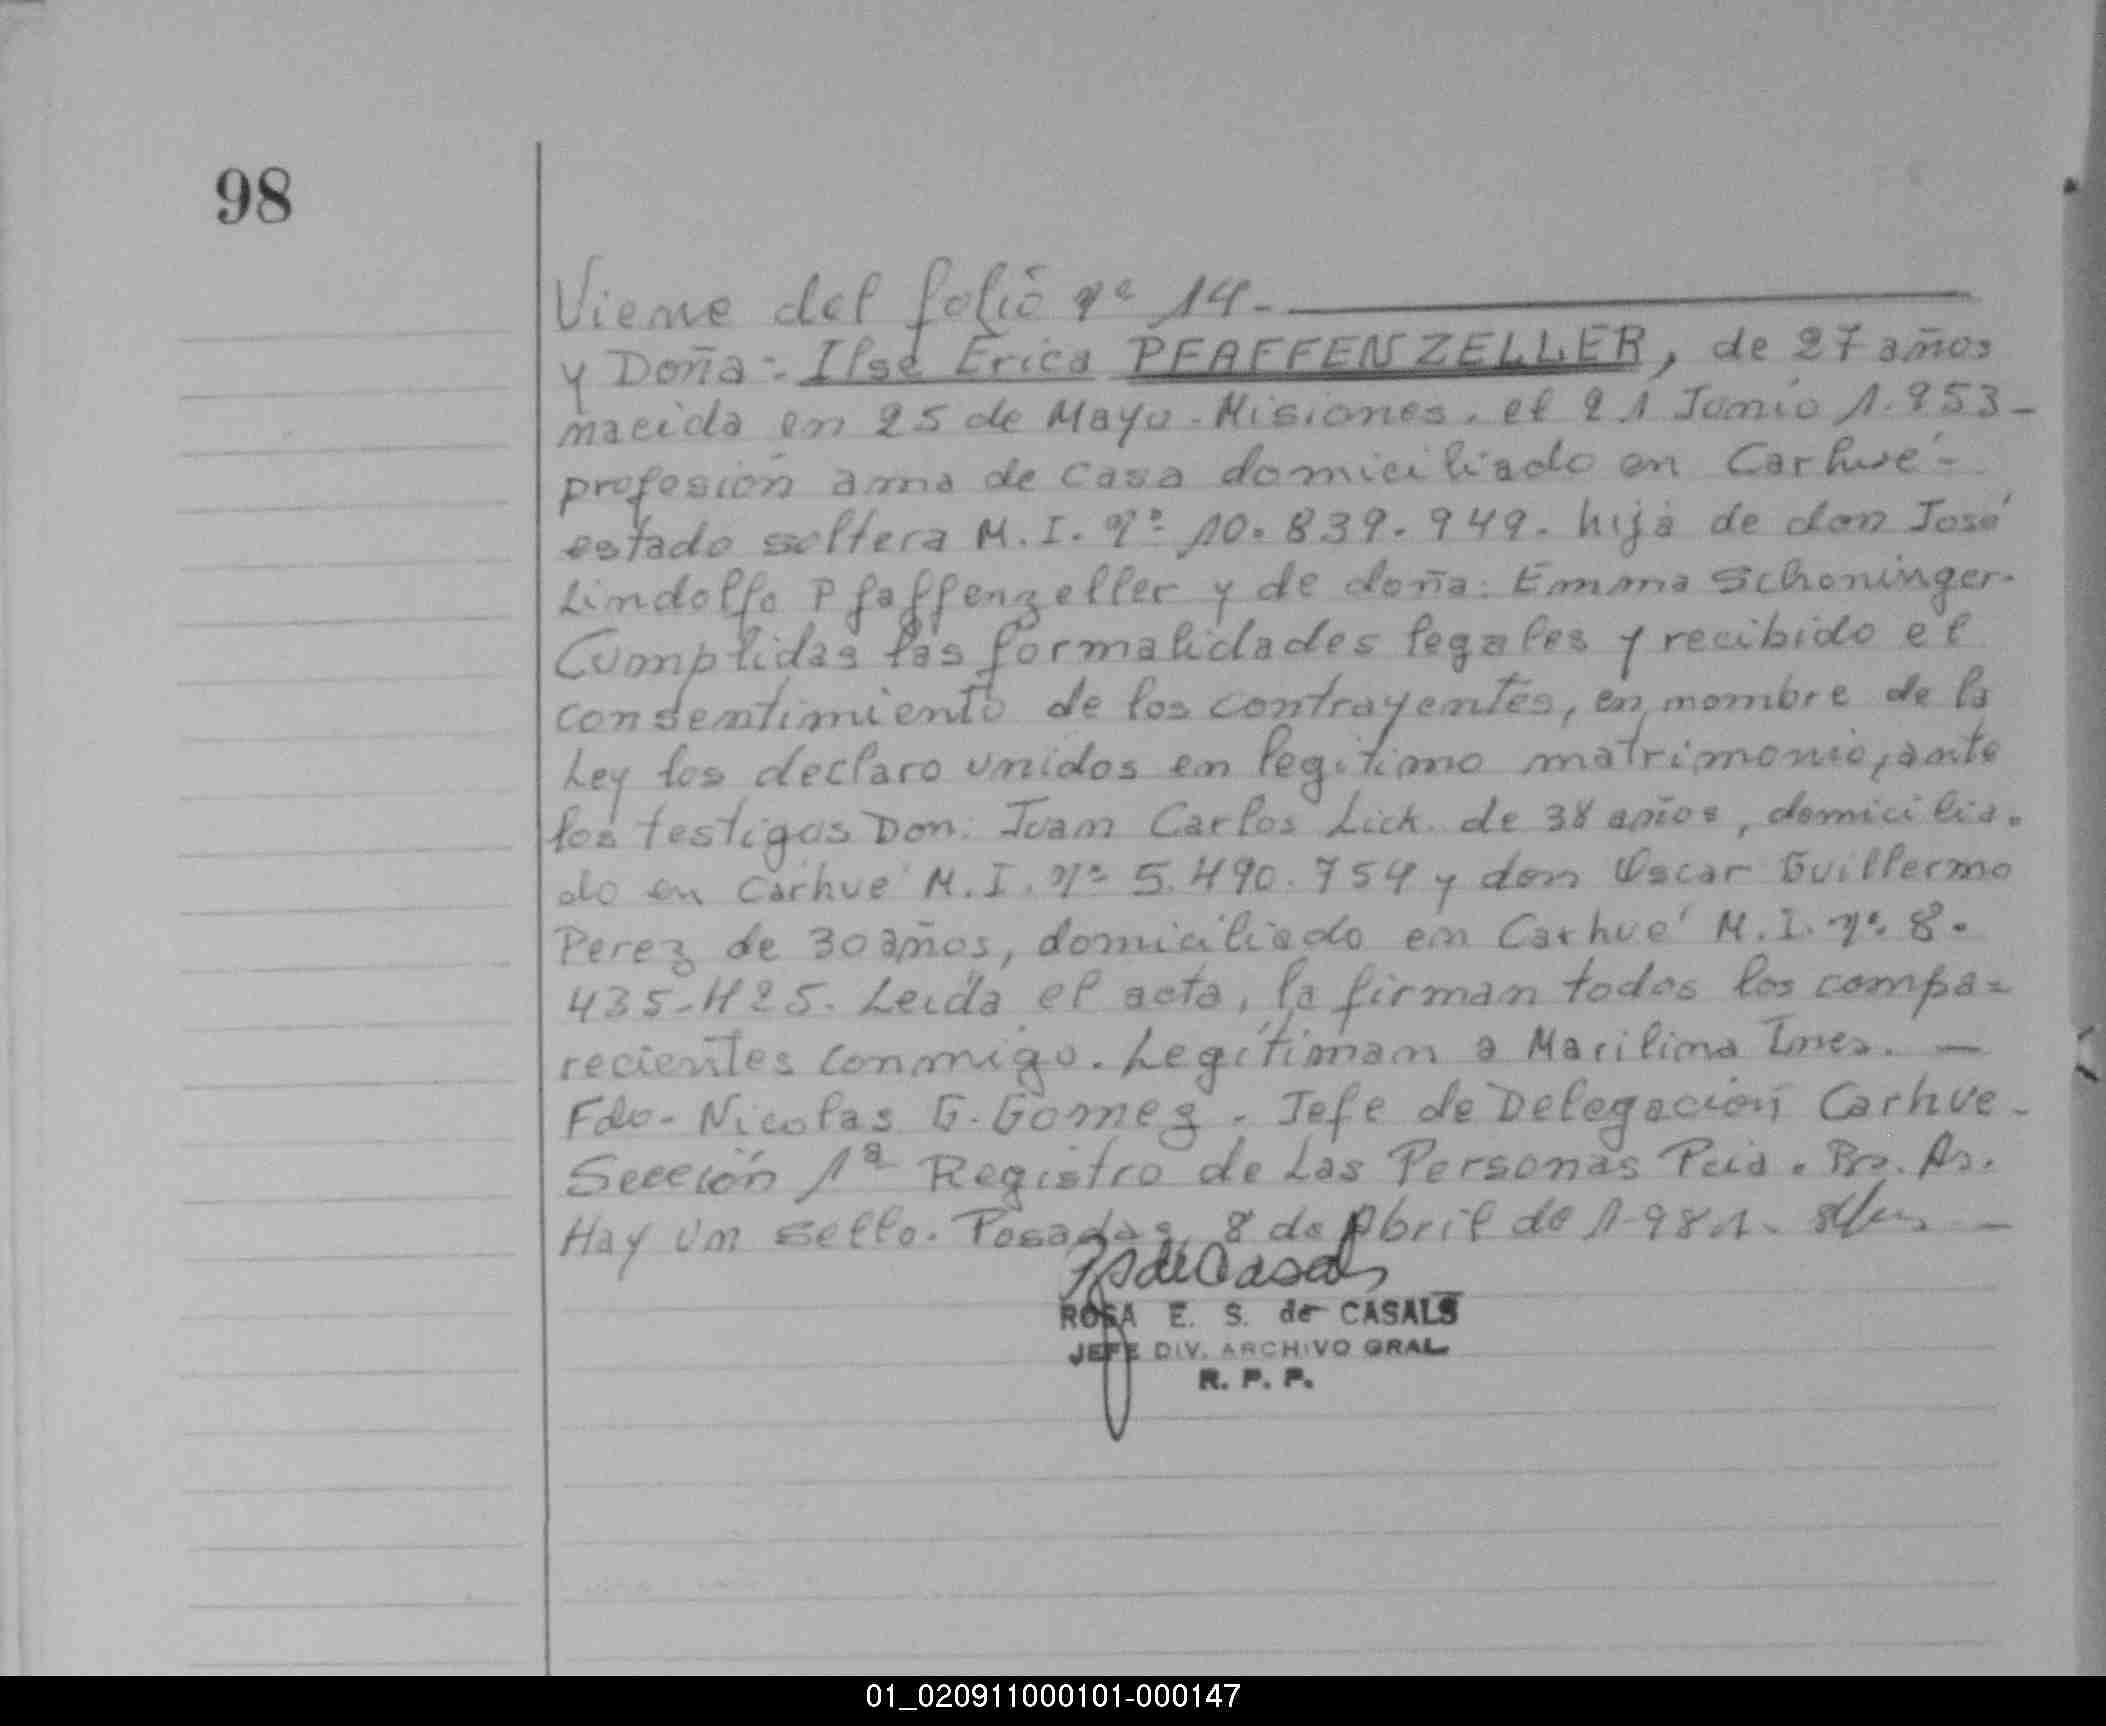 98
Viene del folio nº 14.
y Doña: Ilse Erica PFAFFENZELLER, de 27 años
nacida en 25 de Mayo - Misiones. el 21 Junio 1.953 -
profesión ama de casa domiciliado en Carhué -
estado soltera M.I. nº 10.839.949. hija de don José
Lindolfo Pfaffenzeller y de doña: Emma Schoninger.
Cumplidas las formalidades legales y recibido el
consentimiento de los contrayentes, en nombre de la
Ley los declaro unidos en legitimo matrimonio, ante
los testigos Don: Juan Carlos Lick. de 38 años, domicilia-
do en Carhué M.I. nº 5.490.754 y don Oscar Guillermo
Perez de 30 años, domiciliado en Carhué M.I. nº 8.
435-425. Leída el acta, la firman todos los compa=
recientes conmigo. Legitiman a Marilina Ines. —
Fdo - Nicolas G. Gomez. Jefe de Delegación Carhue -
Sección 1ª Registro de Las Personas Pcia. Bs. As.
Hay un sello. Posadas, 8 de Abril de 1.981.
ROSA E. S. de CASALS
JEFE DIV. ARCHIVO GRAL
R. P. P.
01_020911000101-000147